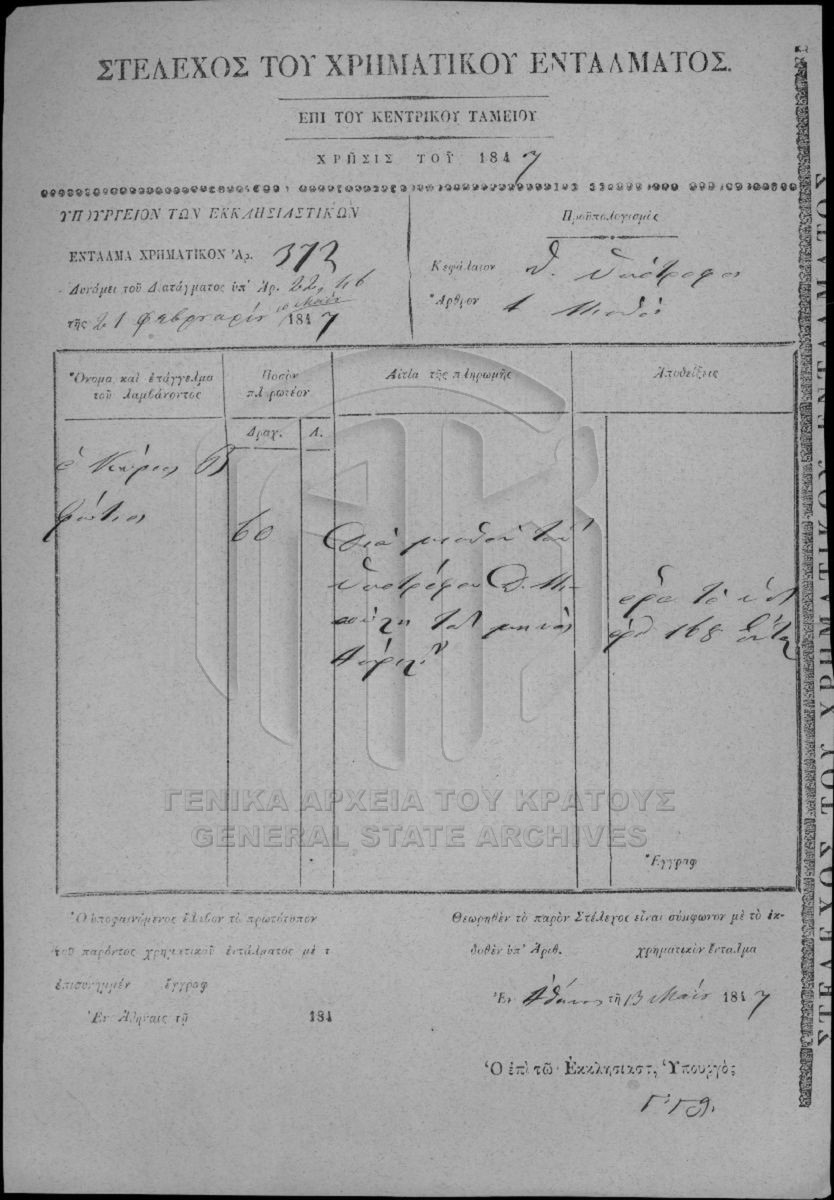 ΣΤΕΛΕΧΟΣ ΤΟΥ ΧΡΗΜΑΤΙΚΟΥ ΕΝΤΑΛΜΑΤΟΣ.
ΕΠΙ ΤΟΥ ΚΕΝΤΡΙΚΟΥ ΤΑΜΕΙΟΥ
ΧΡΗΣΙΣ ΤΟΥ 1847
ΥΠΟΥΡΓΕΙΟΝ ΤΩΝ ΕΚΚΛΗΣΙΑΣΤΙΚΩΝ
ΕΝΤΑΛΜΑ ΧΡΗΜΑΤΙΚΟΝ Ἀρ. 373
Δυνάμει τοῦ Διατάγματος ὑπ' Ἀρ. 22, 46
τῆς 21 Φεβρουαρίου 1847
Προϋπολογισμὸς
Κεφάλαιον Θ. Ὑπότροφοι
Ἄρθρον 1 Μισθοὶ
Ὄνομα καὶ ἐπάγγελμα τοῦ λαμβάνοντος
Ποσὸν πληρωτέον
Αἰτία τῆς πληρωμῆς
Ἀποδείξεις
Δραχ. Λ.
ὁ Κύριος Β
Φώτιος
60
Διὰ μισθὸν τοῦ
ὑποτρόφου
τοῦ μηνὸς
Ἀπριλίου
ὅρα τὸ ὑπ
ἀρθ. 168
Ἔγγραφ
Ὁ ὑποφαινόμενος ἔλαβον τὸ πρωτότυπον
τοῦ παρόντος χρηματικοῦ ἐντάλματος μὲ τ
ἐπισυνημμέν ἔγγραφ
Ἐν Ἀθήναις τῇ 184
Θεωρηθὲν τὸ παρὸν Στέλεχος εἶναι σύμφωνον μὲ τὸ ἐκ-
δοθὲν ὑπ' Ἀριθ. χρηματικὸν ἔνταλμα
Ἐν Ἀθήναις τῇ 13 Μαΐου 1847
Ὁ ἐπὶ τῶν Ἐκκλησιαστ. Ὑπουργὸς
ΓΕΝΙΚΑ ΑΡΧΕΙΑ ΤΟΥ ΚΡΑΤΟΥΣ
GENERAL STATE ARCHIVES
ΣΤΕΛΕΧΟΣ ΤΟΥ ΧΡΗΜΑΤΙΚΟΥ ΕΝΤΑΛΜΑΤΟΣ